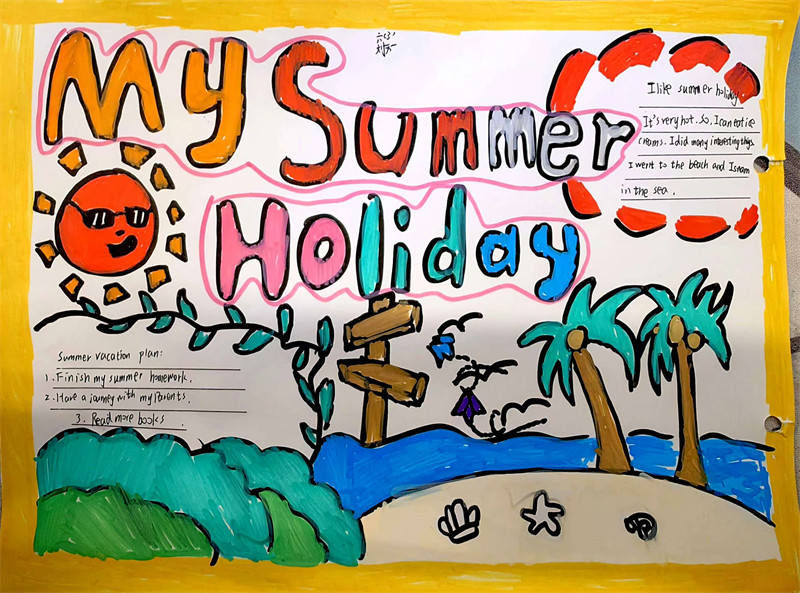 My Summer
Holiday
I like summer holiday.
It's very hot. So, I can eat ice
creams. I did many interesting things.
I went to the beach and I swam
in the sea.
Summer vacation plan:
1. Finish my summer homework.
2. Have a journey with my parents.
3. Read more books.